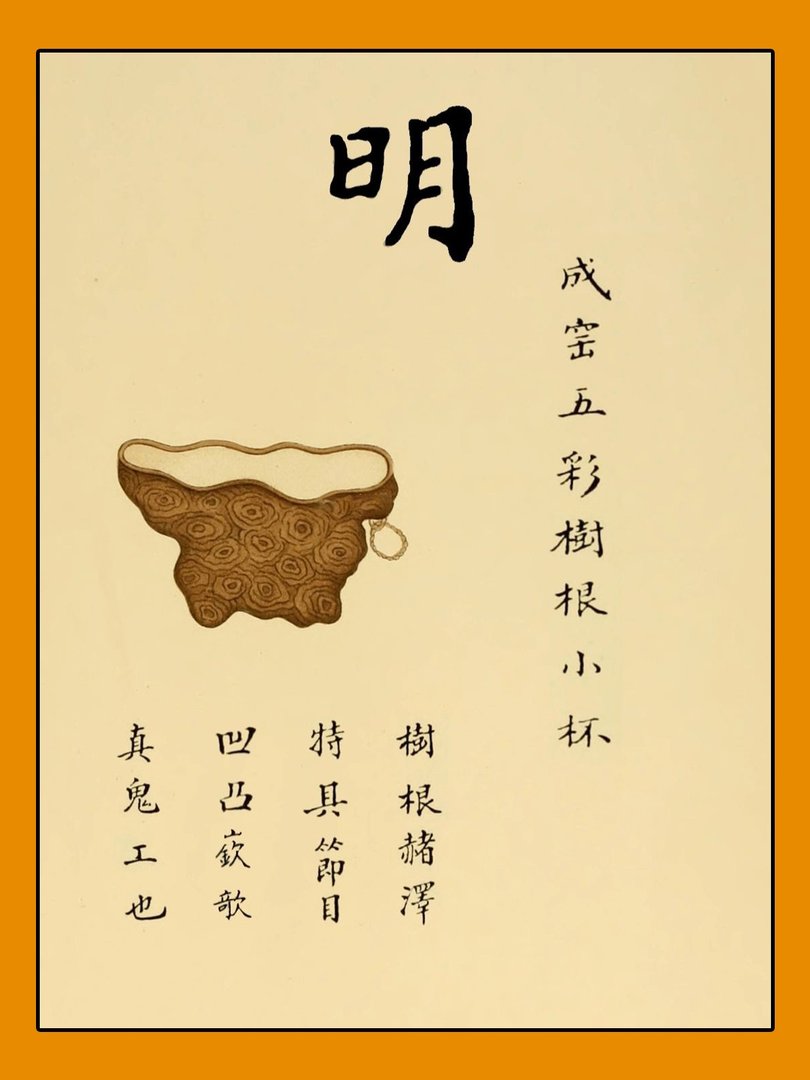 明
成窑五彩樹根小杯
樹根赭澤
特具節目
凹凸嶔歌
真鬼工也